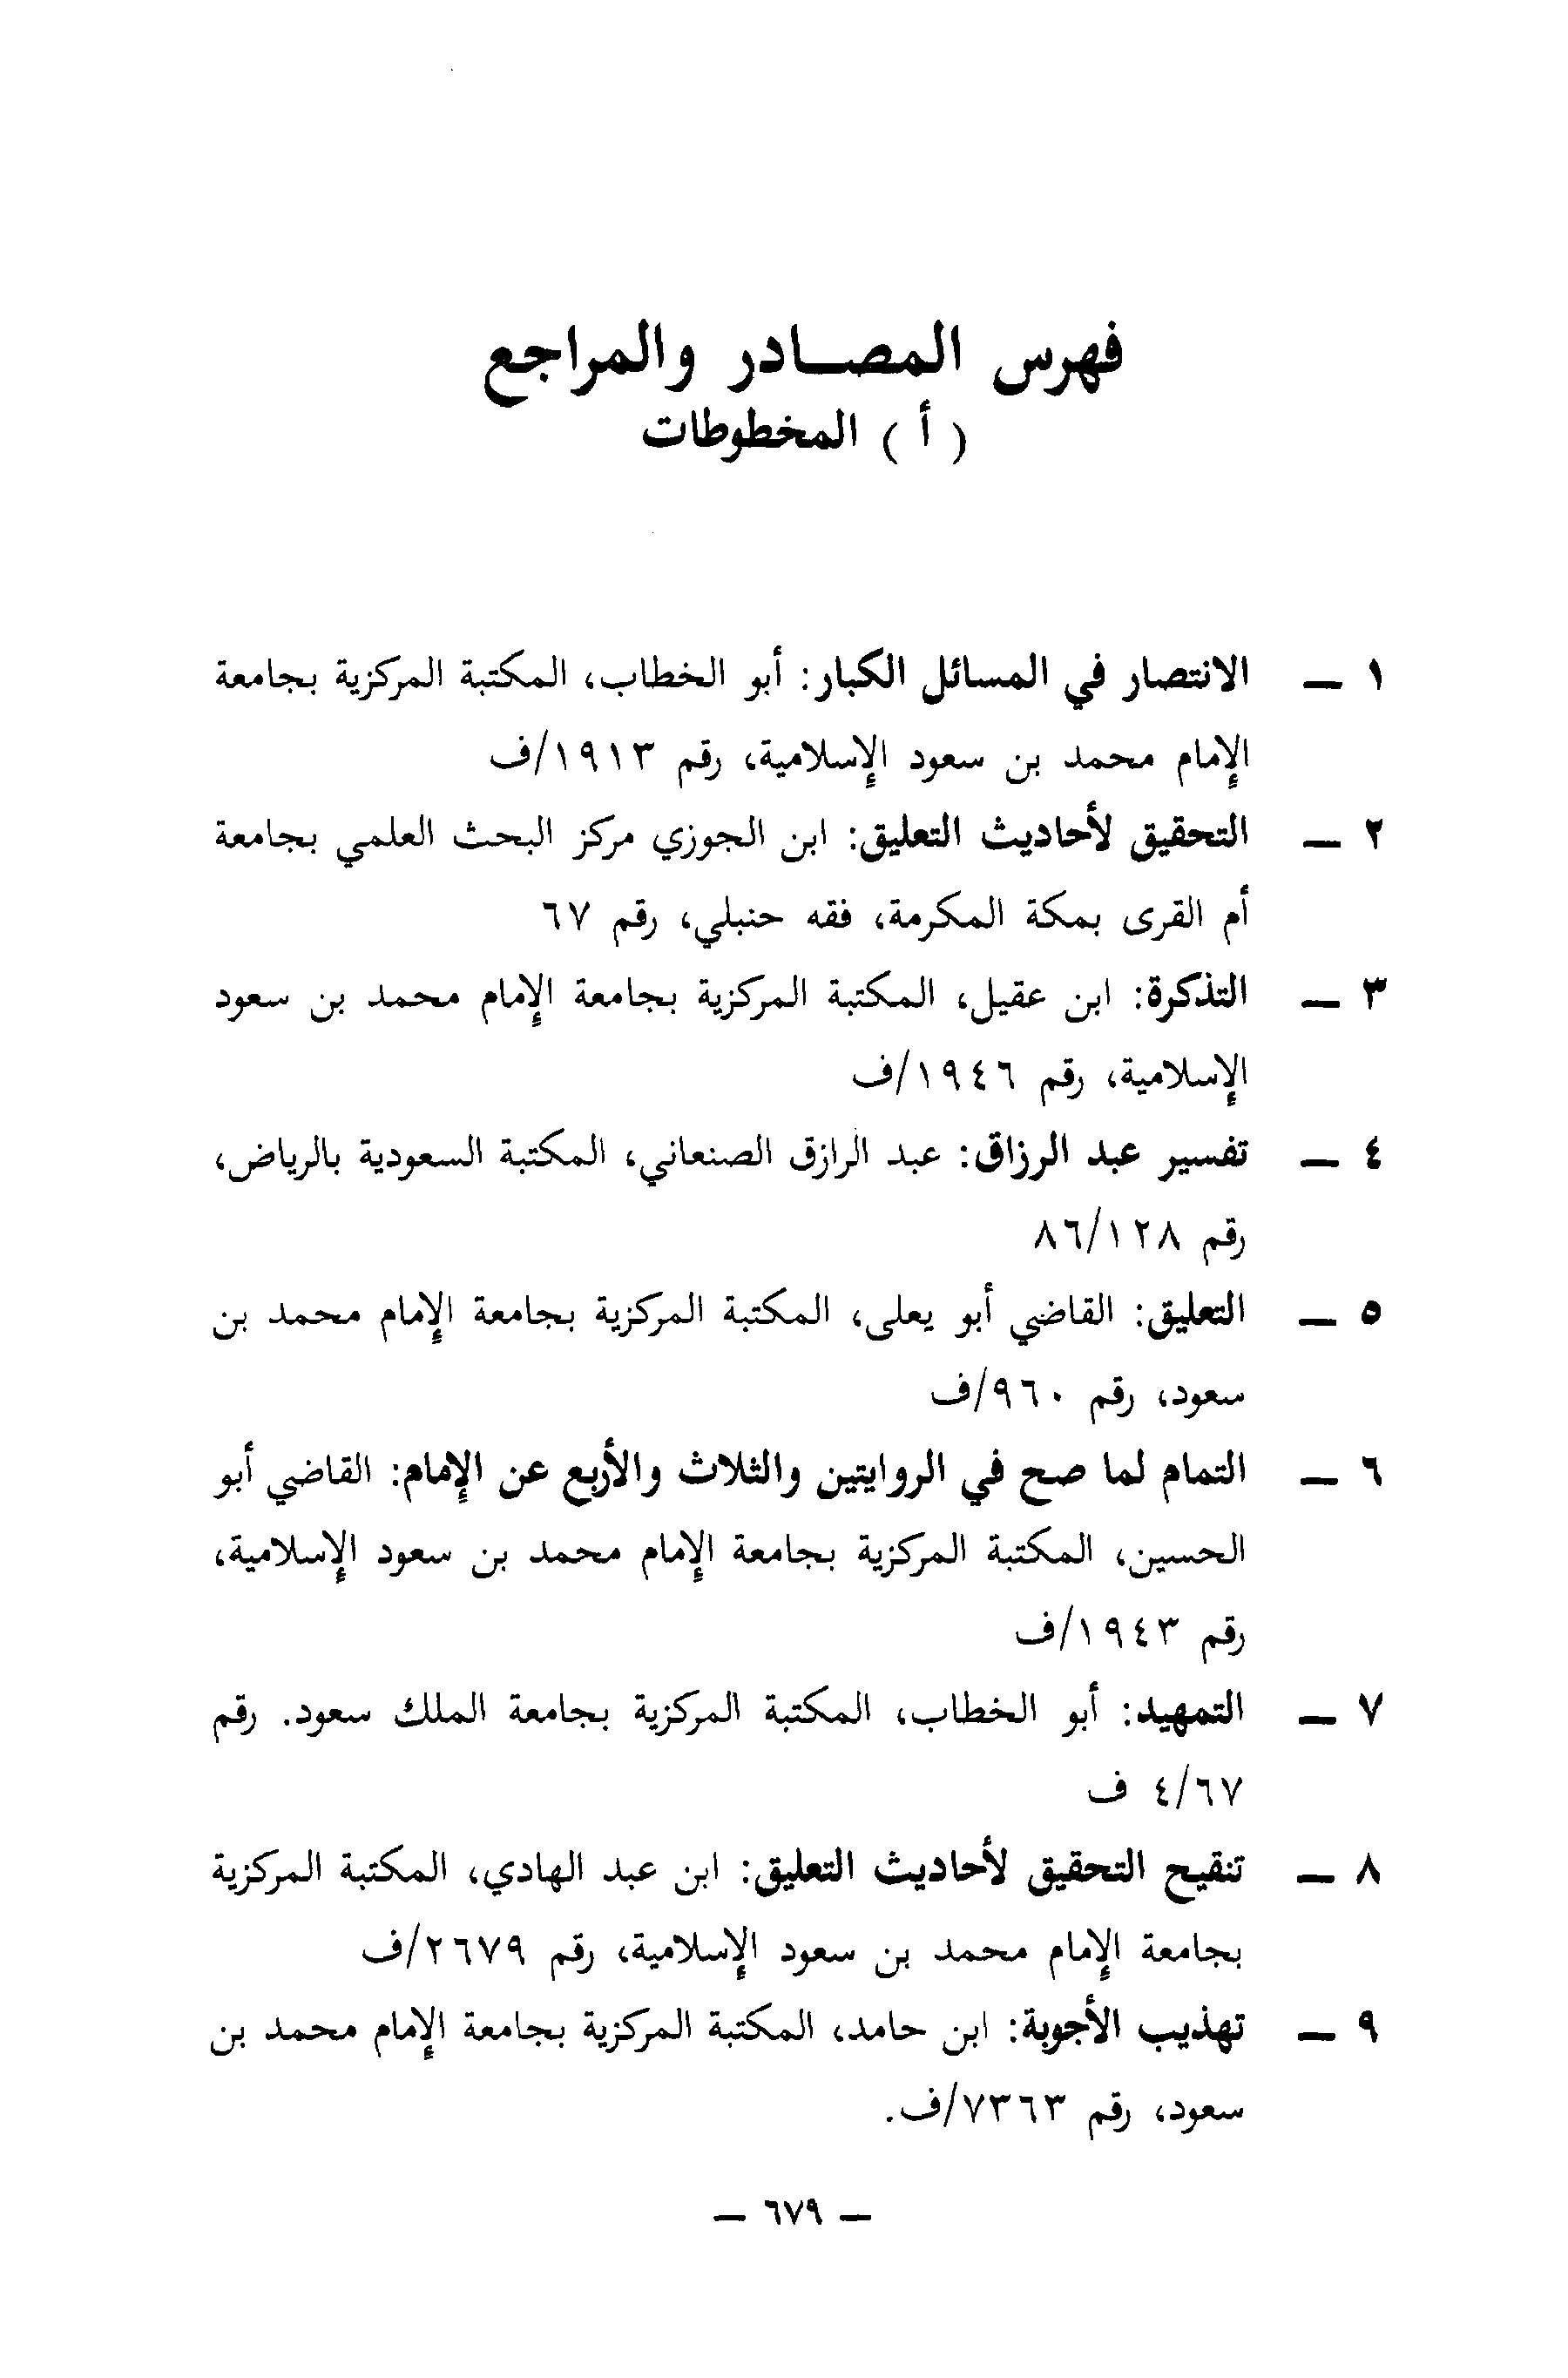 فهرس المصادر والمراجع
( أ ) المخطوطات
١ — الانتصار في المسائل الكبار: أبو الخطاب، المكتبة المركزية بجامعة
الإمام محمد بن سعود الإسلامية، رقم ١٩١٣/ف
٢ — التحقيق لأحاديث التعليق: ابن الجوزي مركز البحث العلمي بجامعة
أم القرى بمكة المكرمة، فقه حنبلي، رقم ٦٧
٣ — التذكرة: ابن عقيل، المكتبة المركزية بجامعة الإمام محمد بن سعود
الإسلامية، رقم ١٩٤٦/ف
٤ — تفسير عبد الرزاق: عبد الرازق الصنعاني، المكتبة السعودية بالرياض،
رقم ٨٦/١٢٨
٥ — التعليق: القاضي أبو يعلى، المكتبة المركزية بجامعة الإمام محمد بن
سعود، رقم ٩٦٠/ف
٦ — التمام لما صح في الروايتين والثلاث والأربع عن الإمام: القاضي أبو
الحسين، المكتبة المركزية بجامعة الإمام محمد بن سعود الإسلامية،
رقم ١٩٤٣/ف
٧ — التمهيد: أبو الخطاب، المكتبة المركزية بجامعة الملك سعود. رقم
٤/٦٧ ف
٨ — تنقيح التحقيق لأحاديث التعليق: ابن عبد الهادي، المكتبة المركزية
بجامعة الإمام محمد بن سعود الإسلامية، رقم ٢٦٧٩/ف
٩ — تهذيب الأجوبة: ابن حامد، المكتبة المركزية بجامعة الإمام محمد بن
سعود، رقم ٧٣٦٣/ف.
— ٦٧٩ —